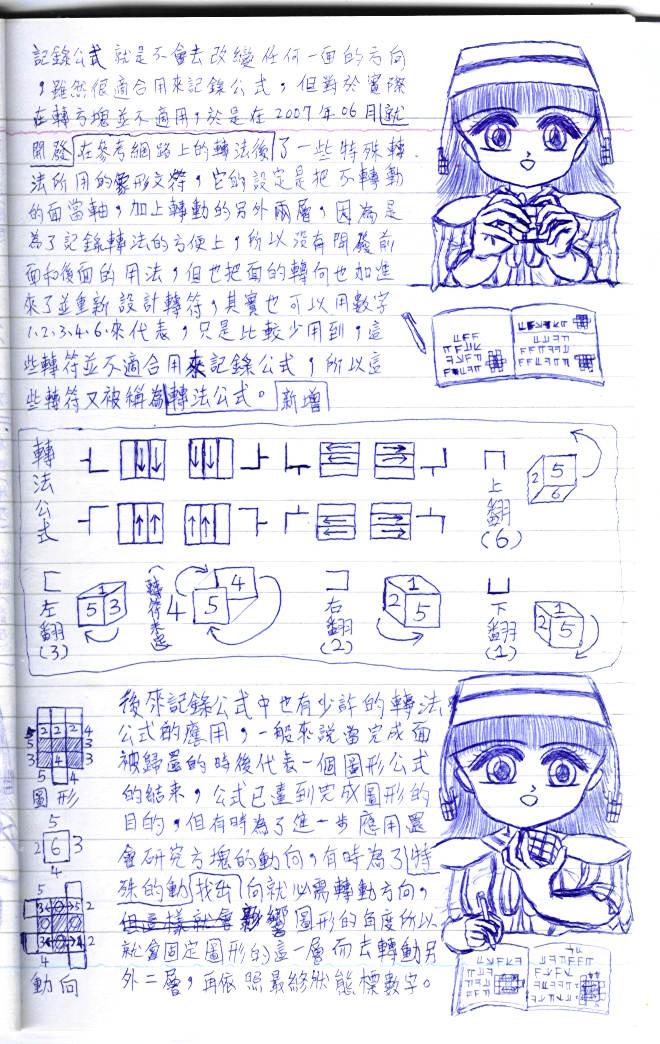 記錄公式就是不會去改變任何一面的方向
，雖然很適合用來記錄公式，但對於實際
在轉方塊並不適用，於是在2007年06月就
開發在參考網路上的轉法後了一些特殊轉
法所用的象形文符，它的設定是把不轉動
的面當軸，加上轉動的另外兩層，因為是
為了記錄轉法的方便上，所以沒有開發前
面和後面的用法，但也把面的轉向也加進
來了並重新設計轉符，其實也可以用數字
1.2.3.4.6.來代表，只是比較少用到，這
些轉符並不適合用來記錄公式，所以這
些轉符又被稱為轉法公式。新增
轉法公式
上翻(6)
2 5 6
左翻(3)
1 5 3
(轉符未造)
4 5 4
右翻(2)
1 2 5
下翻(1)
1 2 5
後來記錄公式中也有少許的轉法
公式的應用，一般來說當完成面
被歸還的時後代表一個圖形公式
的結束，公式已達到完成圖形的
目的，但有時為了進一步應用還
會研究方塊的動向，有時為了特
殊的動找出向就必需轉動方向，
但這樣就會影響圖形的角度所以
就會固定圖形的這一層而去轉動另
外二層，再依照最終狀態標數字。
2 2 2 4
5 3
3 4 3
5 4
圖形
5
2 6 3
4
5
2
2
4
動向